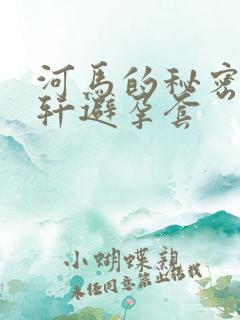 河马的秘密
轩避孕套
小蝴蝶亲
未经同意禁止转载